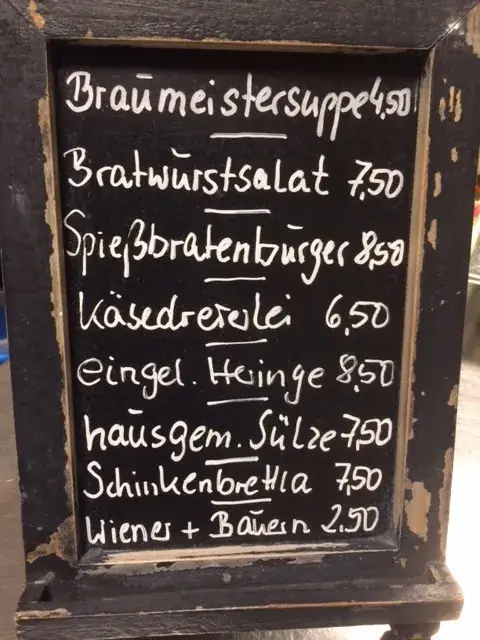 Braumeistersuppe 4,50
Bratwurstsalat 7,50
Spießbratenburger 8,50
Käsedreierlei 6,50
eingel. Heringe 8,50
hausgem. Sülze 7,50
Schinkenbrettla 7,50
Wiener + Bauern 2,50